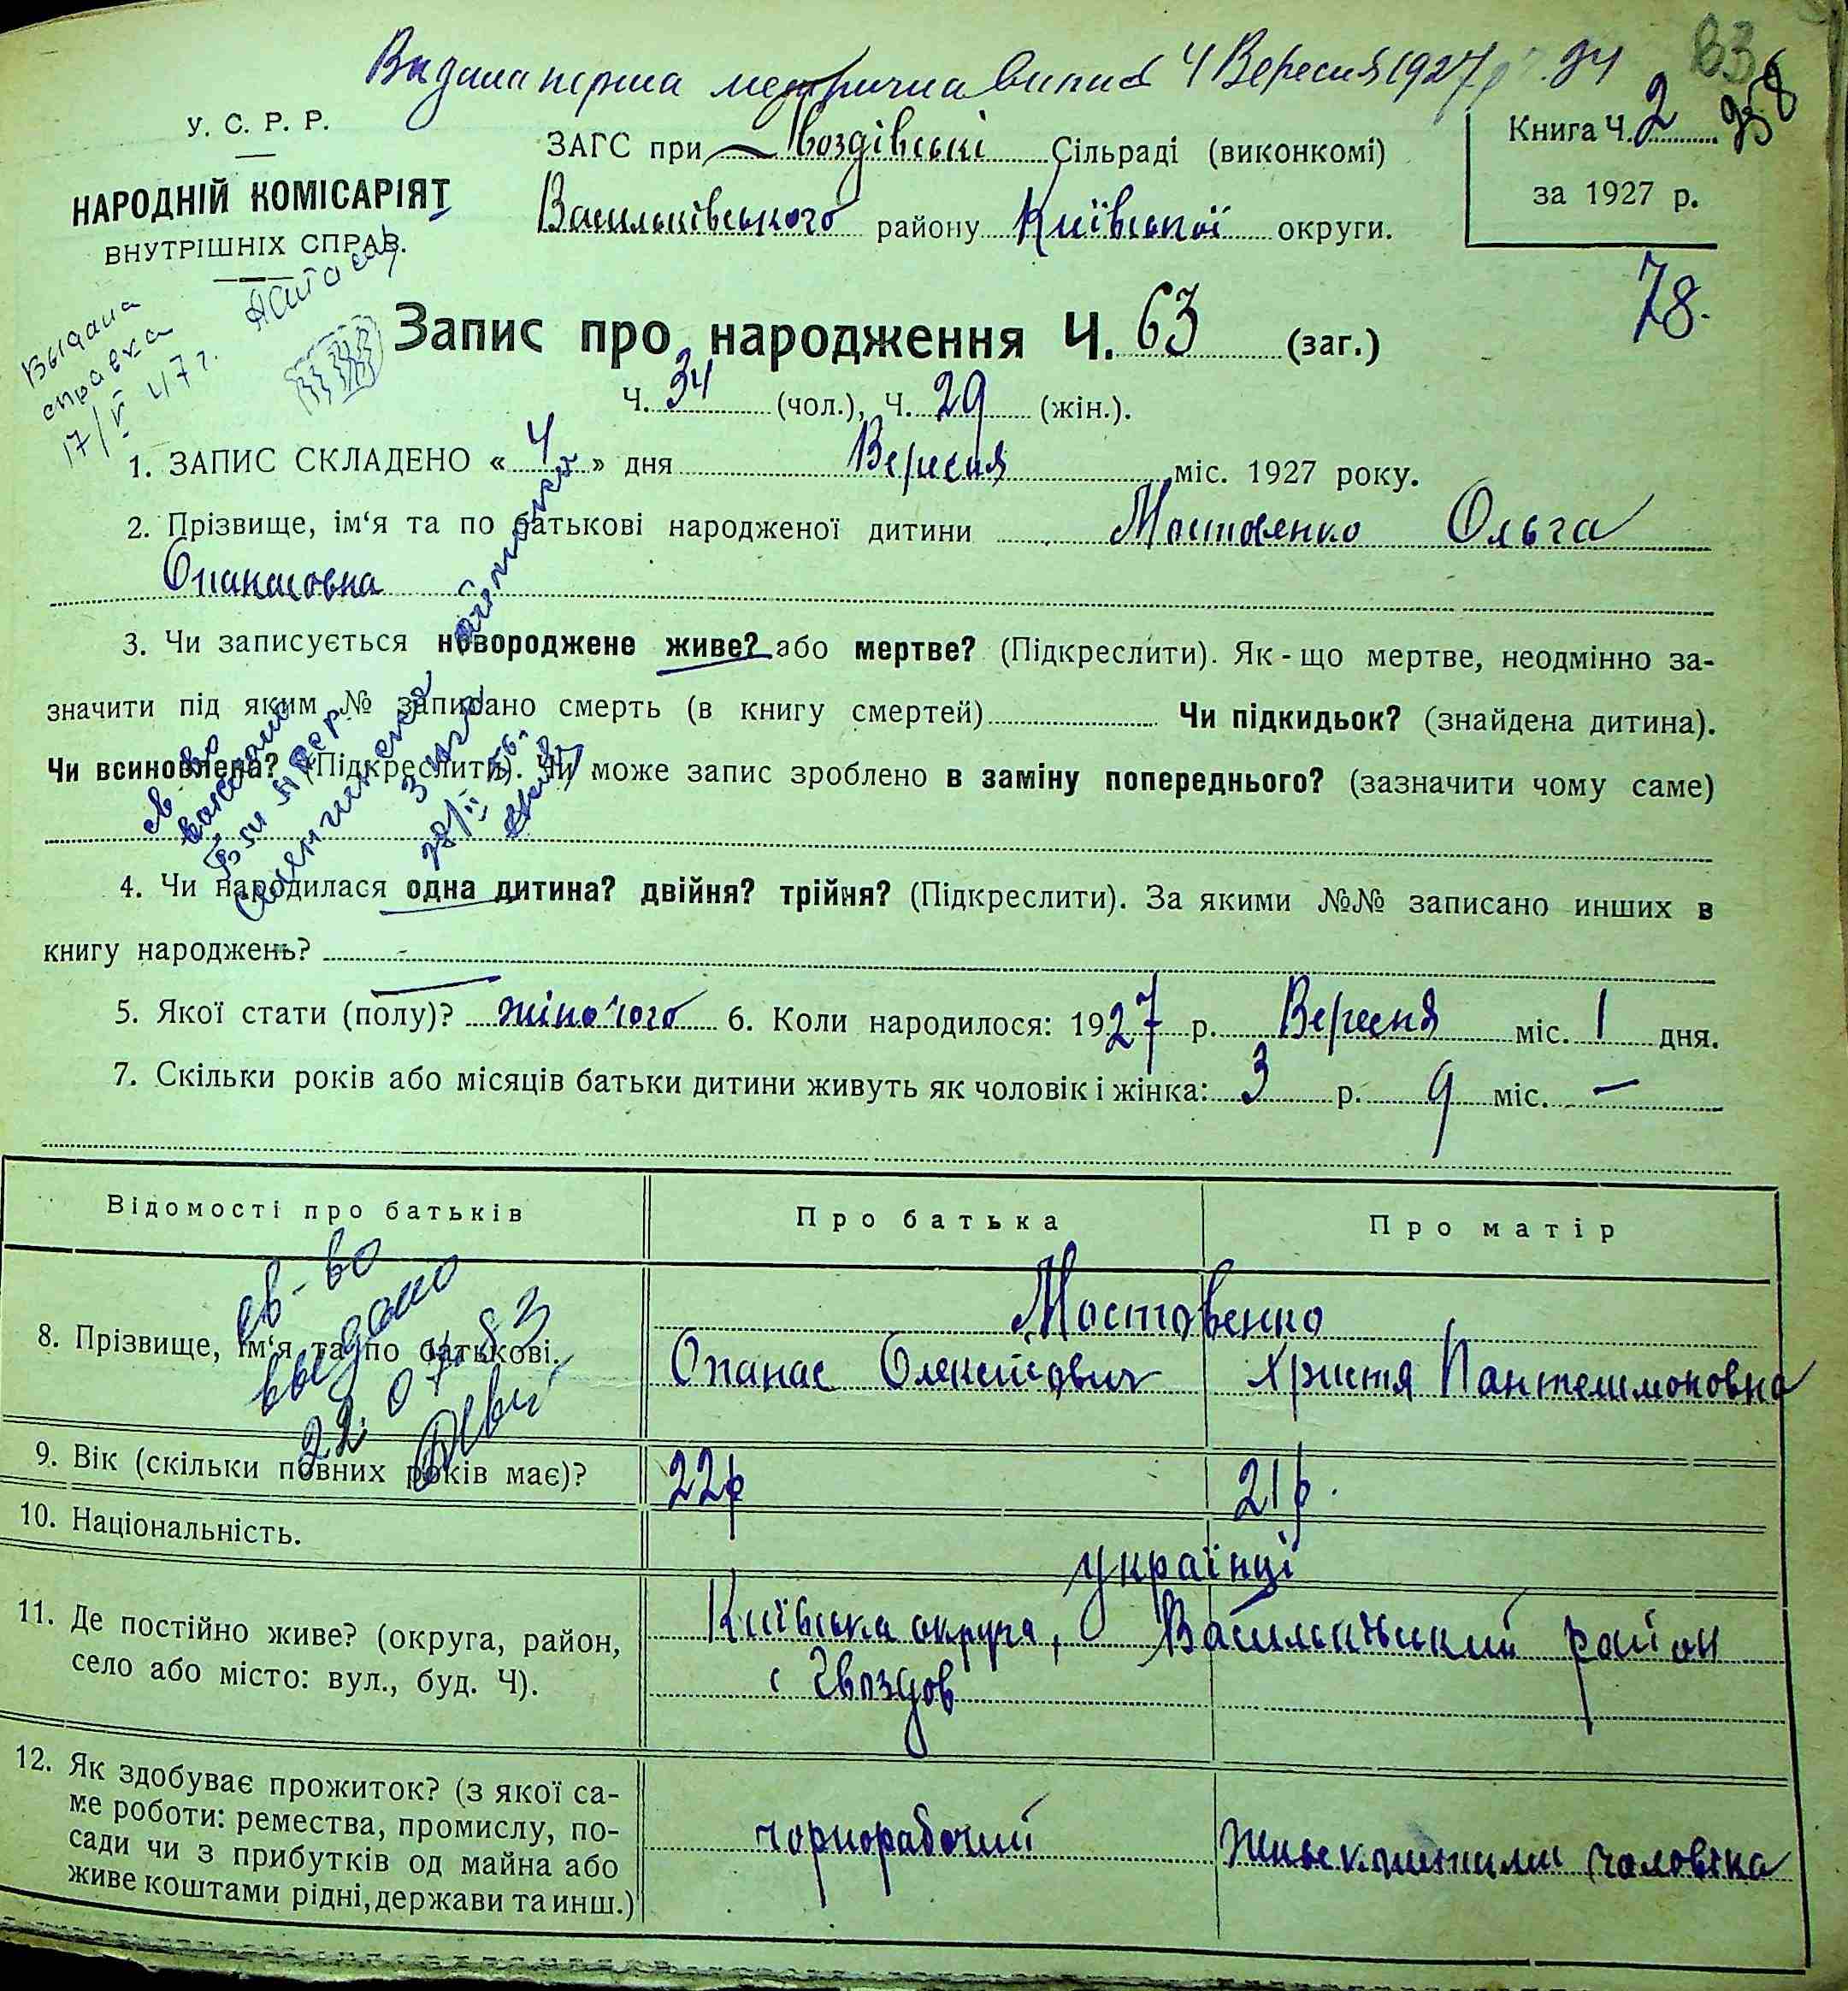 Видана перша метрична випись 4 Вересня 1927 р. 34
У. С. Р. Р.
НАРОДНІЙ КОМІСАРІЯТ
ВНУТРІШНІХ СПРАВ.
ЗАГС при Гвоздівські Сільраді (виконкомі)
Васильківського району Київської округи.
Книга Ч. 2
за 1927 р.
78.
Выдана
справка
17/V 47 г.
Запис про народження Ч. 63 (заг.)
Ч. 34 (чол.), Ч. 29 (жін.).
1. ЗАПИС СКЛАДЕНО « 4 » дня Вересня міс. 1927 року.
2. Прізвище, ім‘я та по батькові народженої дитини Мостовенко Ольга
Опанасовна
3. Чи записується новороджене живе? або мертве? (Підкреслити). Як-що мертве, неодмінно за-
значити під яким № записано смерть (в книгу смертей) Чи підкидьок? (знайдена дитина).
Чи всиновлена? (Підкреслити). Чи може запис зроблено в заміну попереднього? (зазначити чому саме)
4. Чи народилася одна дитина? двійня? трійня? (Підкреслити). За якими №№ записано инших в
книгу народжень? -
5. Якої стати (полу)? жіночого 6. Коли народилося: 1927 р. Вересня міс. 1 дня.
7. Скільки років або місяців батьки дитини живуть як чоловік і жінка: 3 р. 9 міс. —
Відомості про батьків Про батька Про матір
св-во
выдано
22. 07. 83
8. Прізвище, ім‘я та по батькові. Мостовенко
Опанас Олексійович Христя Пантелимоновна
9. Вік (скільки повних років має)? 22р 21р.
10. Національність. українці
11. Де постійно живе? (округа, район,
село або місто: вул., буд. Ч).
Київська округа, Васильківський район
с Гвоздов
12. Як здобуває прожиток? (з якої са-
ме роботи: ремества, промислу, по-
сади чи з прибутків од майна або
живе коштами рідні, держави та инш.)
чорнорабочий живе коштами чоловіка